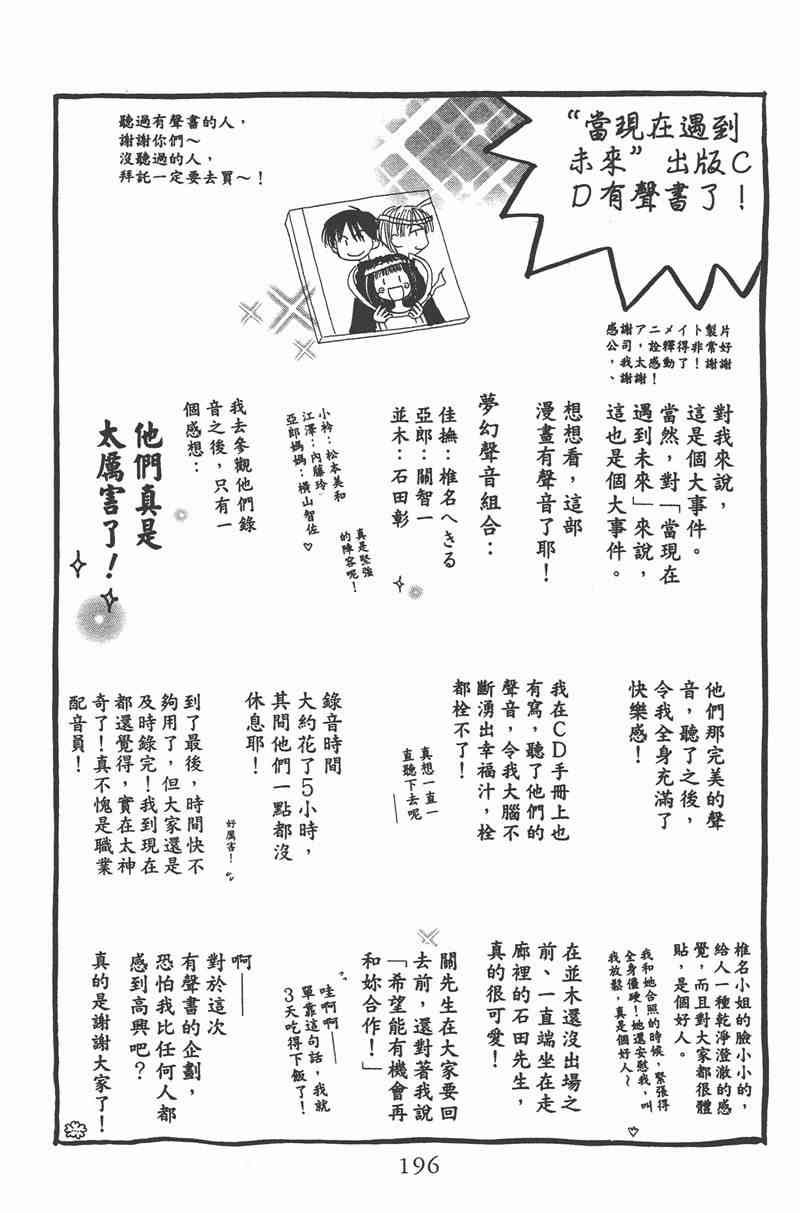 “當現在遇到
未來”出版C
D有聲書了！
聽過有聲書的人，
謝謝你們～
沒聽過的人，
拜託一定要去買～！
片好謝
製常謝
ト非！
イ得了
メ釋動
ニ詮感！
ア，太謝
謝司我謝
感公，、
對我來說，
這是個大事件。
當然，對「當現在
遇到未來」來說，
這也是個大事件。
想想看，這部
漫畫有聲音了耶！
夢幻聲音組合：
佳撫：椎名へきる
亞郎：關智一
並木：石田彰
小衿：松本美和
江澤：內藤玲
亞郎媽媽：橫山智佐♡
真是堅強
的陣容呢！
我去參觀他們錄
音之後，只有一
個感想：
他們真是
太厲害了！
他們那完美的聲
音，聽了之後，
令我全身充滿了
快樂感！
我在CD手冊上也
有寫，聽了他們的
聲音，令我大腦不
斷湧出幸福汁，栓
都栓不了！
真想一直一
直聽下去呢
──
錄音時間
大約花了5小時，
其間他們一點都沒
休息耶！
好厲害！
到了最後，時間快不
夠用了，但大家還是
及時錄完！我到現在
都還覺得，實在太神
奇了！真不愧是職業
配音員！
椎名小姐的臉小小的，
給人一種乾淨澄澈的感
覺，而且對大家都很體
貼，是個好人。
我和她合照的時候，緊張得
全身僵硬！她還安慰我，叫
我放鬆，真是個好人～♡
在並木還沒出場之
前、一直端坐在走
廊裡的石田先生，
真的很可愛！
關先生在大家要回
去前，還對著我說
「希望能有機會再
和妳合作！」
哇啊啊──
單靠這句話，我就
3天吃得下飯了！
啊──
對於這次
有聲書的企劃，
恐怕我比任何人都
感到高興吧？
真的是謝謝大家了！
196